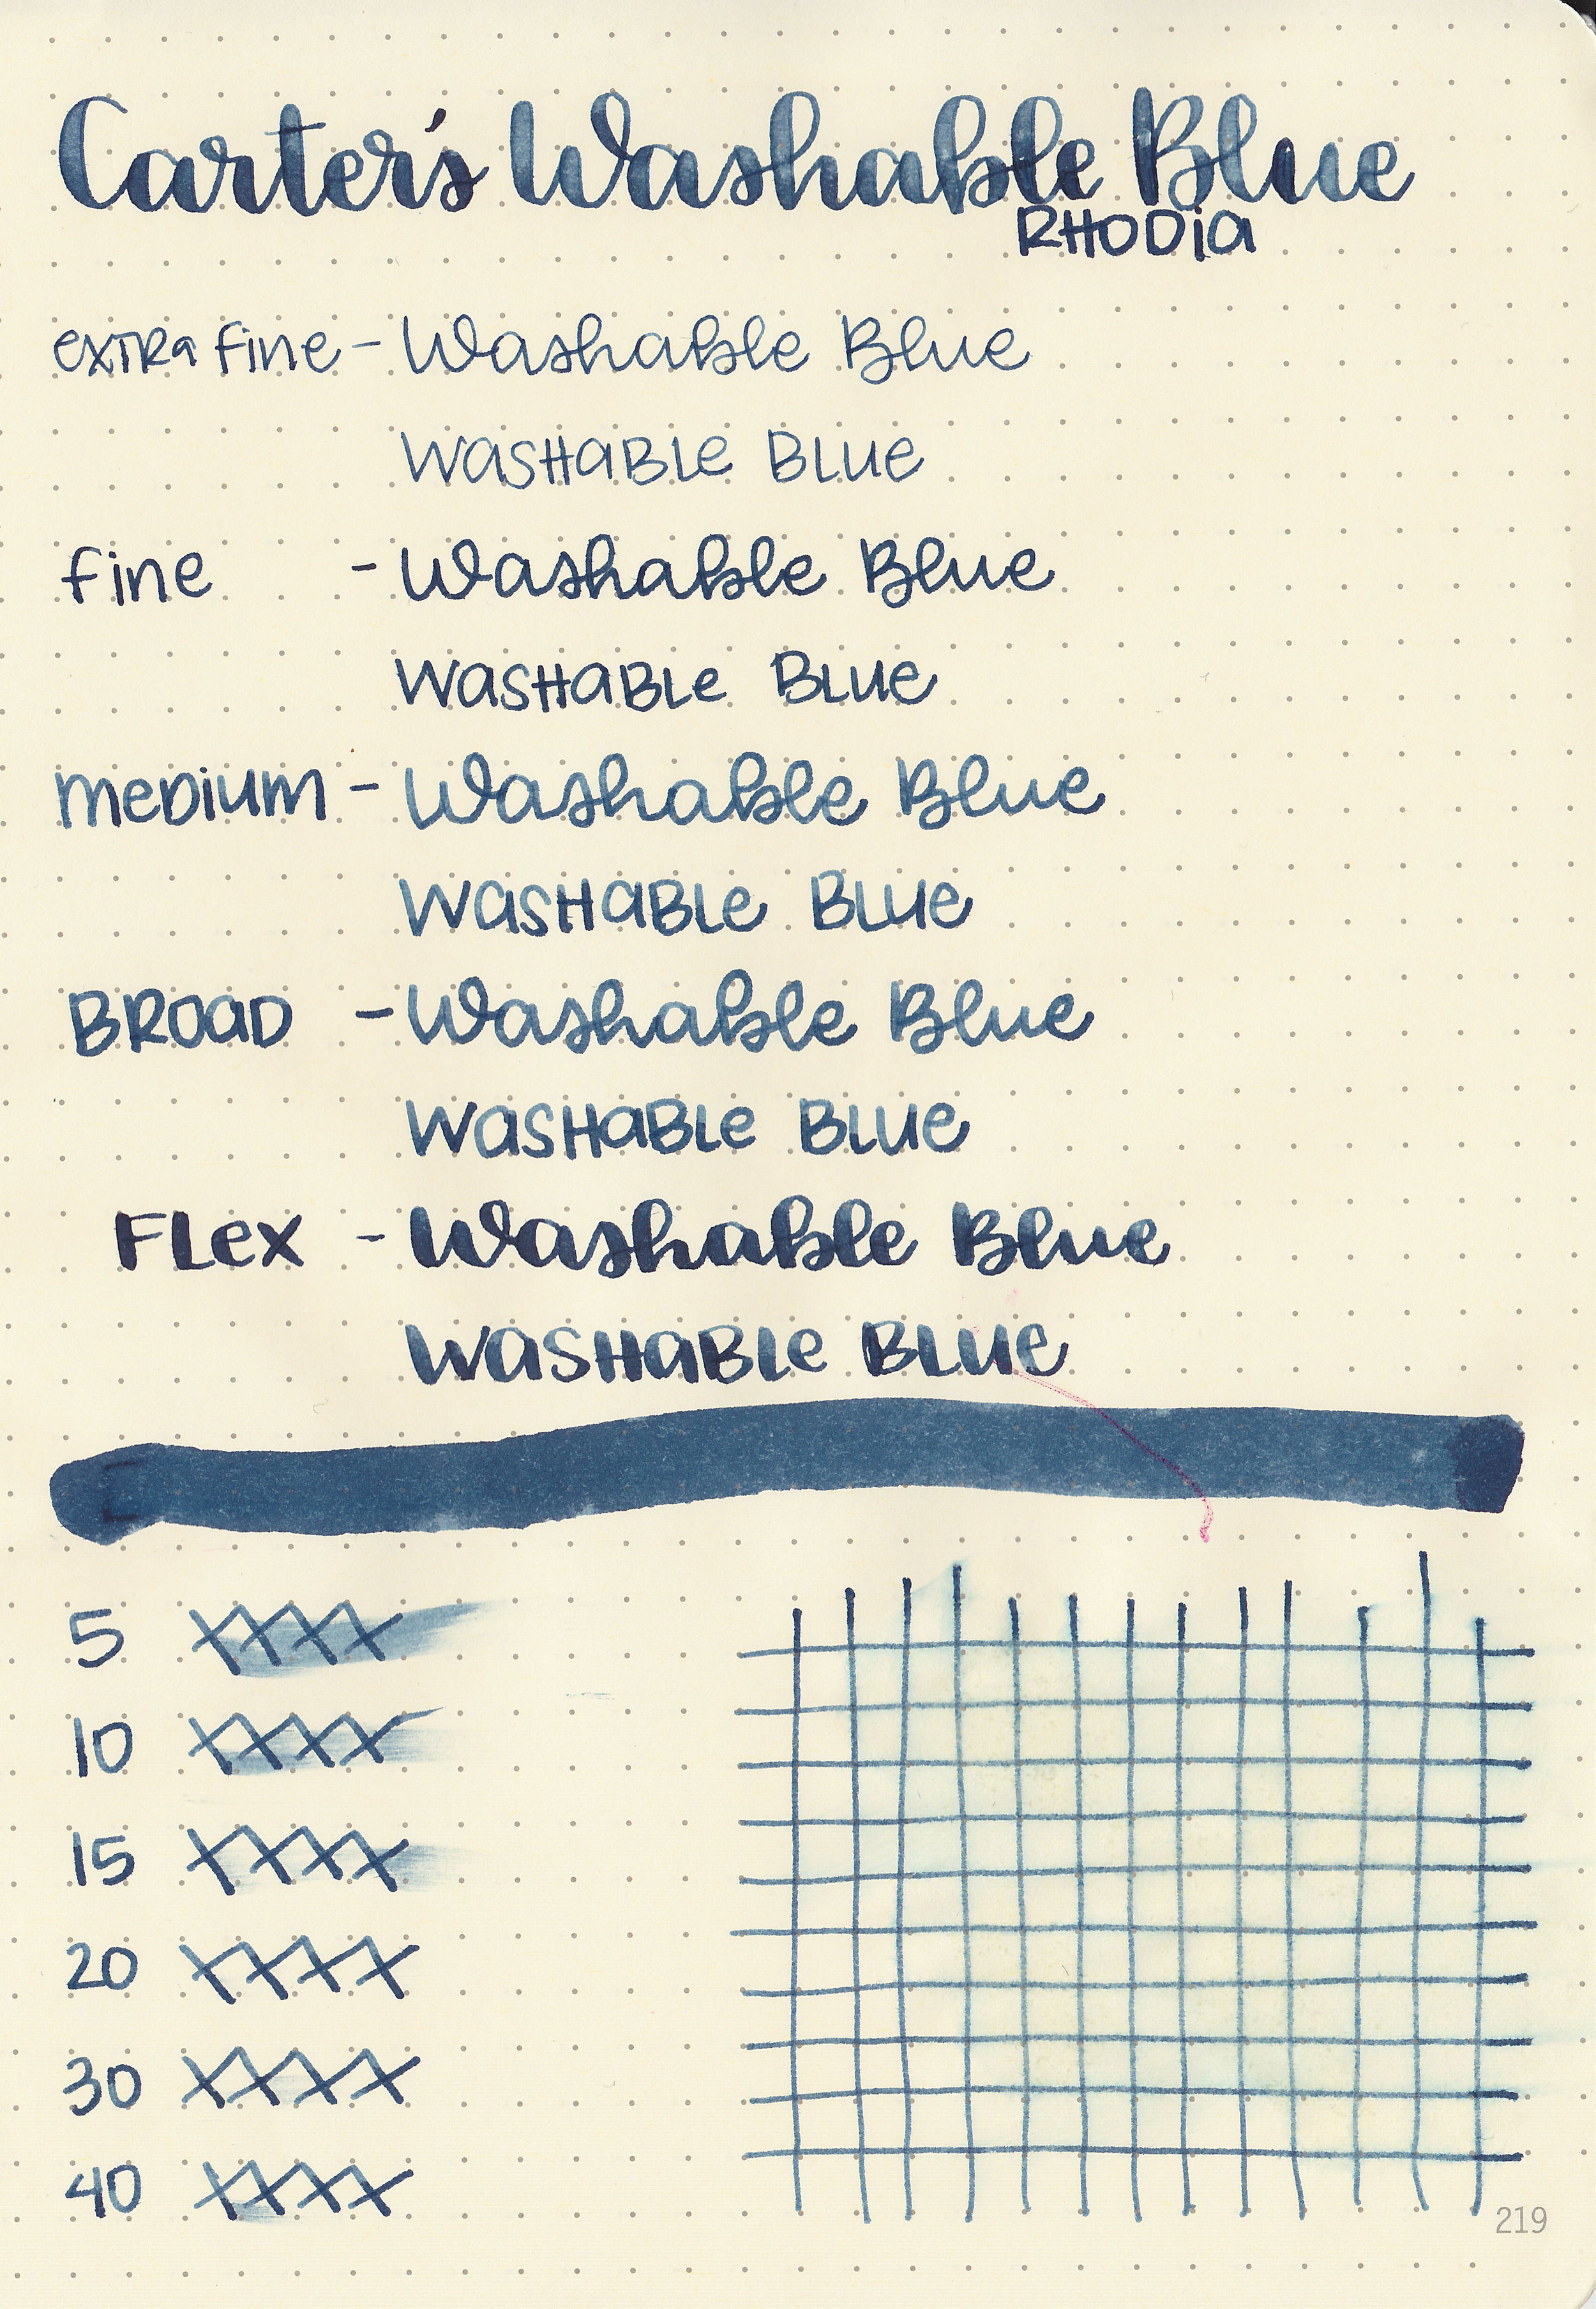 Carter's Washable Blue
RHODIA
extra fine - Washable Blue
WASHABLE BLUE
fine - Washable Blue
WASHABLE BLUE
MEDIUM - Washable Blue
WASHABLE BLUE
BROAD - Washable Blue
WASHABLE BLUE
FLEX - Washable Blue
WASHABLE BLUE
5 XXXX
10 XXXX
15 XXXX
20 XXXX
30 XXXX
40 XXXX
219